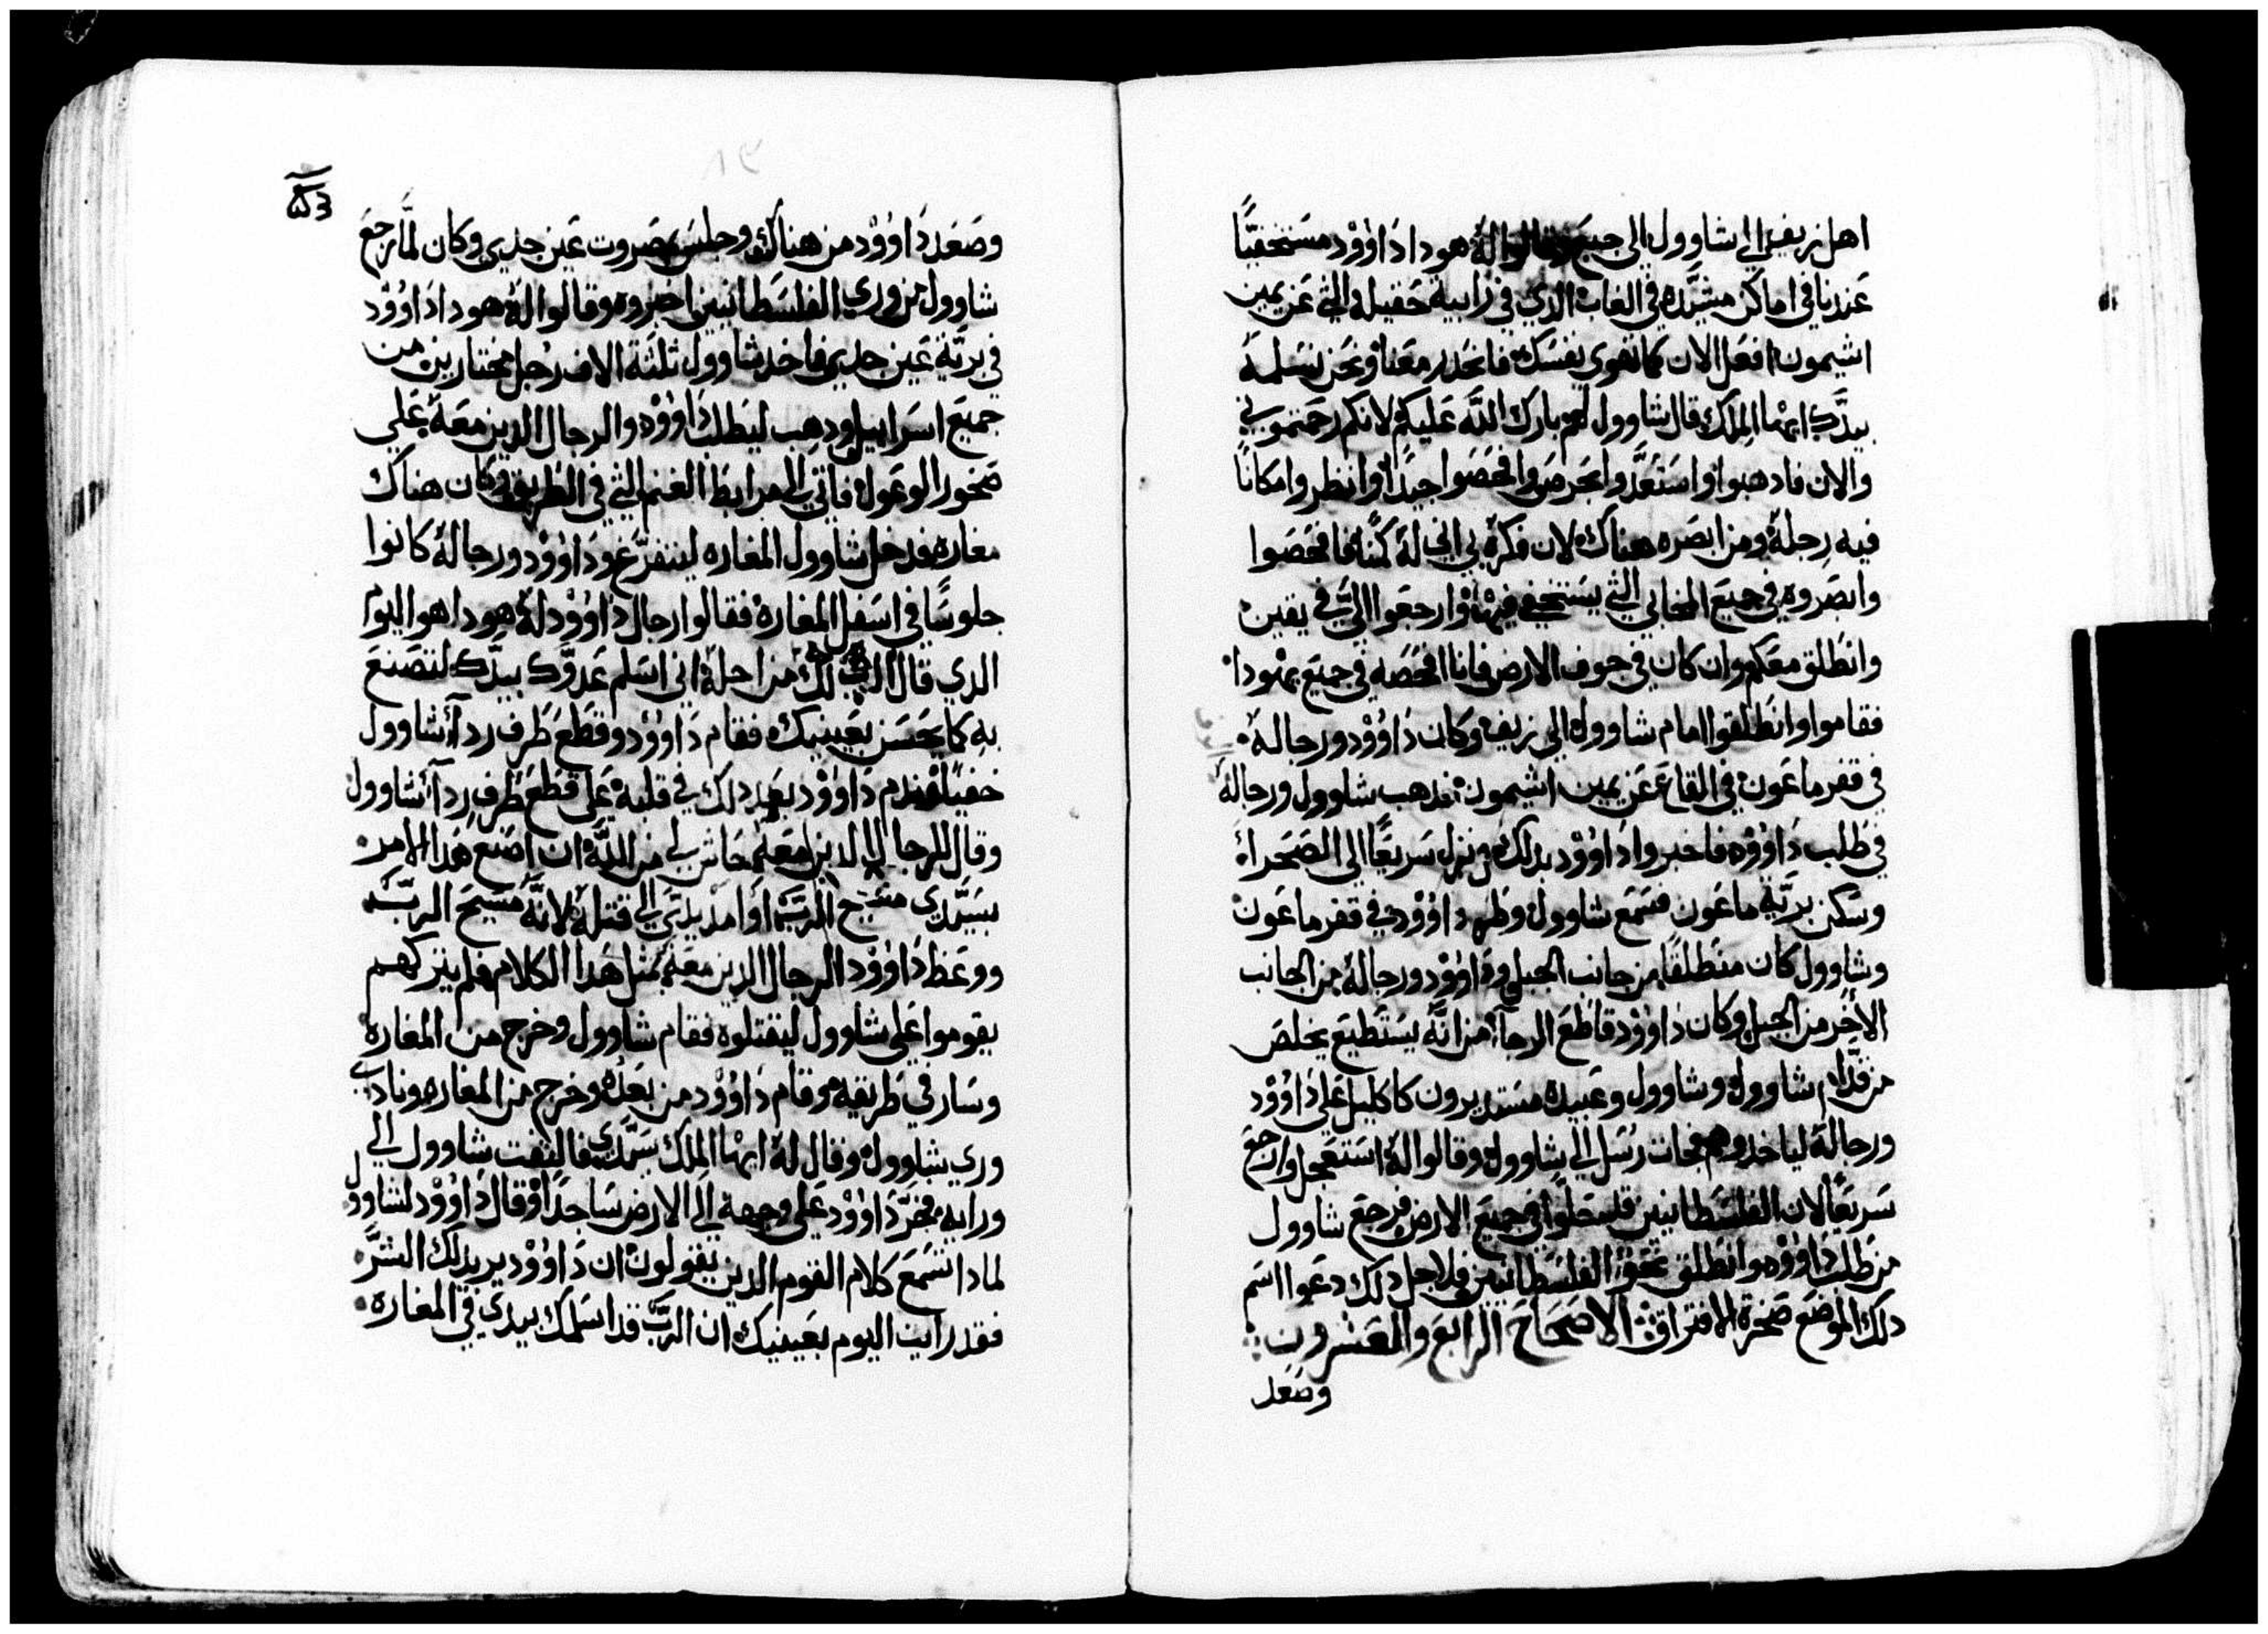 اهل زيف الي شاوول الي جبع وقالوا له هودا داوود مستخفيًا
عندنا في اماكن مشيده في الغاب الذي في رابية حقيله التي عن يمين
اشيمون افعل الان كما تهوي نفسك فانحدر معنا ونحن نسلمه
بيدك ايها الملك قال شاوول لهم بارك الله عليكم لانكم رحمتموني
والان فادهبوا واستعدوا بحرص وافحصوا جيدًا وانظروا مكانًا
فيه رجله ومن ابصره هناك لان فكره بي اني له كمنًا فافحصوا
وابصروه في جميع المخابي التي يستخفي فيها وارجعوا الي في يقين
وانطلق معكم وان كان في جوف الارض فانا افحصه في جميع يهودا
فقاموا وانطلقوا امام شاوول الي زيف وكان داوود ورجاله
في قفر ماعون في القاع عن يمين اشيمون فدهب شاوول ورجاله
في طلب داوود فاخبروا داوود بدلك فنزل سريعًا الي الصحراء
وسكن برية ماعون فسمع شاوول وطرد داوود في قفر ماعون
وشاوول كان منطلقًا من جانب الجبل وداوود ورجاله من الجانب
الأخر من الجبل وكان داوود قاطع الرجاء من انه يستطيع يخلص
من قدام شاوول وشاوول وعبيده مستديرون كاكليل علي داوود
ورجاله لياخدوهم فجات رسل الي شاوول وقالوا له استعجل وارجع
سريعًا لان الفلسطانيين قد سطوا في جميع الارض فرجع شاوول
من طلب داوود وانطلق عقب الفلسطانيين فلاجل دلك دعوا اسم
دلك الموضع صخرة الافتراق الاصحاح الرابع والعشرون
وصعد
وصعد داوود من هناك وجلس بصروت عين جدي وكان لما رجع
شاوول من وري الفلسطانيين اخبروه وقالوا له هودا داوود
في برية عين جدي فاخد شاوول ثلثة الاف رجل مختارين من
جميع اسراييل ودهب ليطلب داوود والرجال الدين معه علي
صخور الوعول فاتي الي مرابط الغنم التي في الطريق وكان هناك
مغاره فدخل شاوول المغاره ليتفرغ وداوود ورجاله كانوا
جلوسًا في اسفل المغاره فقالوا رجال داوود له هودا هو اليوم
الدي قال الرب لك من اجله اني اسلم عدوك بيدك لتصنع
به كما يحسن بعينيك فقام داوود وقطع طرف ردآء شاوول
خفيًا فندم داوود بعد دلك في قلبه علي قطع طرف ردآء شاوول
وقال للرجال الدين معه حاش لي من الله ان اصنع هدا الامر
بسيدي مسيح الرب او امد يدي الي قتله لانه مسيح الرب
ووعظ داوود الرجال الدين معه بمثل هدا الكلام فلم يتركهم
يقوموا علي شاوول ليقتلوه فقام شاوول وخرج من المغاره
وسار في طريقه وقام داوود من بعده وخرج من المغاره ونادي
وري شاوول وقال له ايها الملك سيدي فالتفت شاوول الي
ورايه فخر داوود علي وجهه الي الارض ساجدًا وقال داوود لشاوول
لمادا تسمع كلام القوم الدين يقولون ان داوود يريد لك الشر
فقد رايت اليوم بعينيك ان الرب قد اسلمك بيدي في المغاره